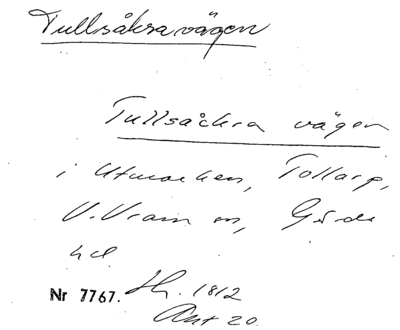 Tullsåkravägen
Tullsåckra vägen
i Utmarken, Tollarp,
V. Vram sn, Gärds
hd
Nr 7767. Sk. 1812
Akt 20.